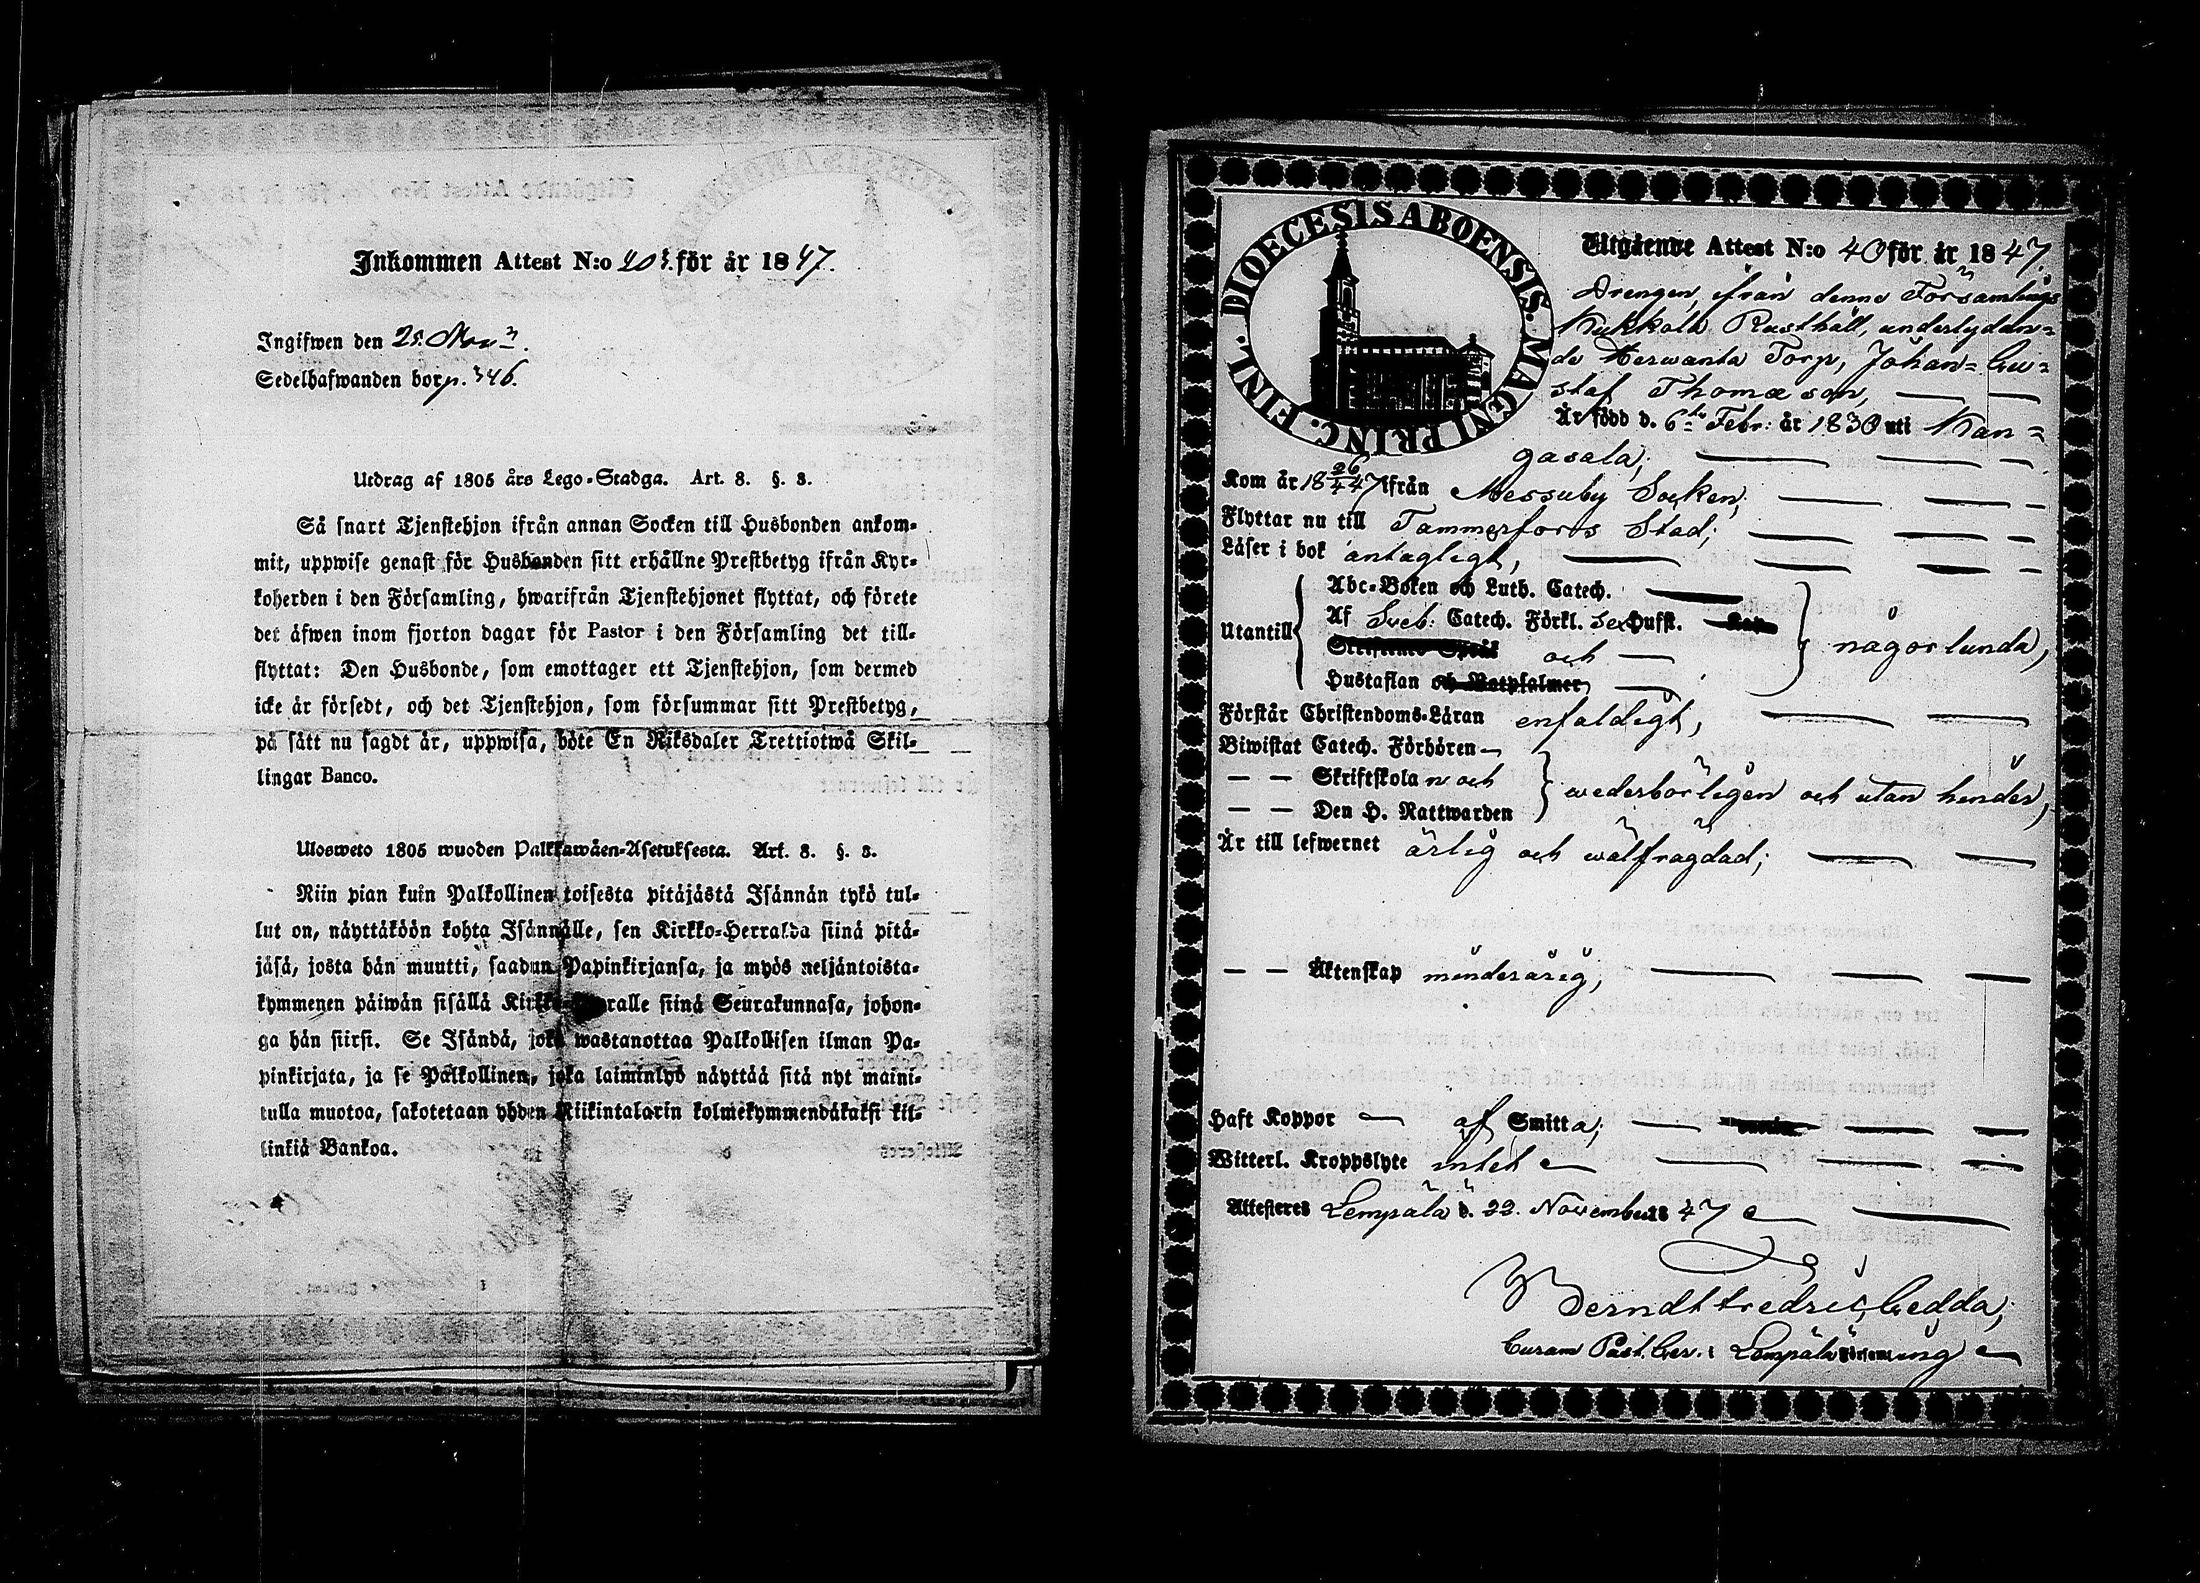 Inkommen Attest N:o 203. för år 1847.
Ingifwen den 25. Nov.
Sedelhafwanden bor p. 346.
Utdrag af 1805 års Lego-Stadga. Art. 8. §. 3.
Så snart Tjenstehjon ifrån annan Socken till Husbonden ankom-
mit, uppwise genast för Husbonden sitt erhållne Prestbetyg ifrån Kyr-
koherden i den Församling, hwarifrån Tjenstehjonet flyttat, och förete
det äfwen inom fjorton dagar för Pastor i den Församling det till-
flyttat: Den Husbonde, som emottager ett Tjenstehjon, som dermed
icke är försedt, och det Tjenstehjon, som försummar sitt Prestbetyg,
på sätt nu sagdt är, uppwisa, böte En Riksdaler Trettiotwå Skil-
lingar Banco.
Ulosweto 1805 wuoden Palkkawäen-Asetuksesta. Art. 8. §. 3.
Niin pian kuin Palkollinen toisesta pitäjästä Isännän tykö tul-
lut on, näyttäköön kohta Isännälle, sen Kirkko-Herralda siinä pitä-
jäsä, josta hän muutti, saadun Papinkirjansa, ja myös neljäntoista-
kymmenen päiwän sisällä Kirkko-Herralle siinä Seurakunnasa, johon-
ga hän siirsi. Se Isändä, joka wastanottaa Palkollisen ilman Pa-
pinkirjata, ja se Palkollinen, joka laiminlyö näyttää sitä nyt maini-
tulla muotoa, sakotetaan yhden Riikintalarin kolmekymmendäkaksi kil-
linkiä Bankoa.
DIOECESIS ABOENSIS. MAGNI PRINC. FINL.
Utgående Attest N:o 40 för år 1847.
Drengen, ifrån denne Församlings
Kukkola Rusthåll, underlydan-
de Herwanta Torp, Johan Gu-
staf Thomæson,
Är född d. 6te Febr: år 1830 uti Kan-
gasala;
Kom år 18 26/4 47 ifrån Messuby Socken;
Flyttar nu till Tammerfors Stad;
Läser i bok antagligt,
Abc-Boken och Luth. Catech.
Utantill Af Sveb: Catech. Förkl. sex Hufst. någorlunda,
och
Hustaflan och Botpsalmer
Förstår Christendoms-Läran enfaldigt,
Biwistat Catech. Förhören
— — Skriftskolan och wederbörligen och utan hinder,
— — Den H. Nattwarden
Är till lefwernet ärlig och wälfrägdad;
— — Äktenskap minderårig;
Haft Koppor af Smitta;
Witterl. Kroppslyte intet
Attesteres Lempälä d. 22. November 1847
Berndt Fredric Gedda,
Curam Past. Ger. i Lempälä Församl:ing